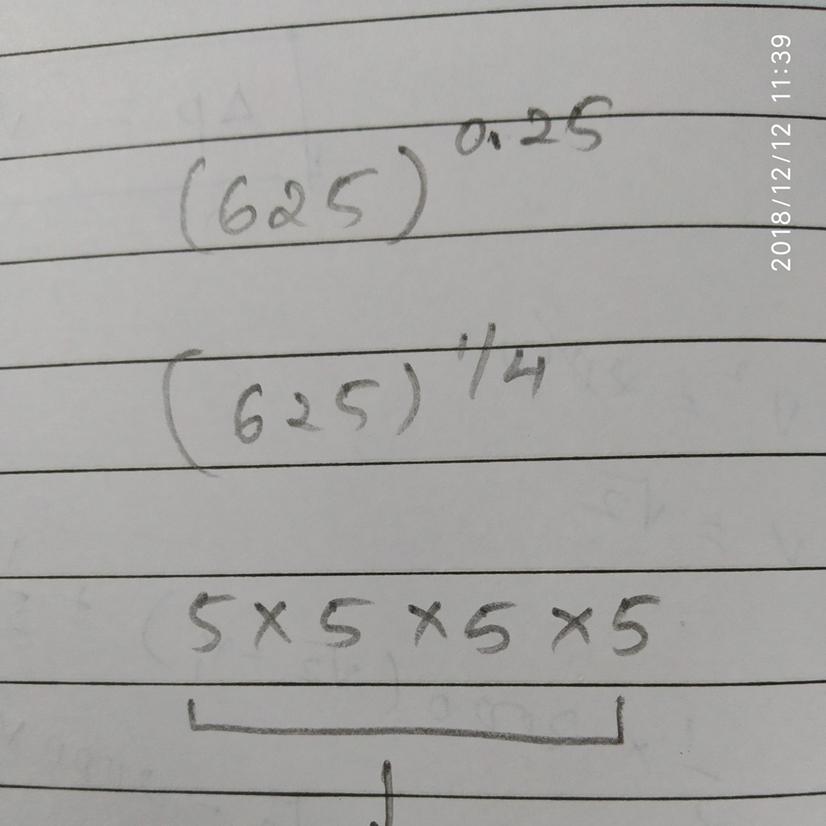 (625)^0.25
(625)^1/4
5 × 5 × 5 × 5
2018/12/12 11:39